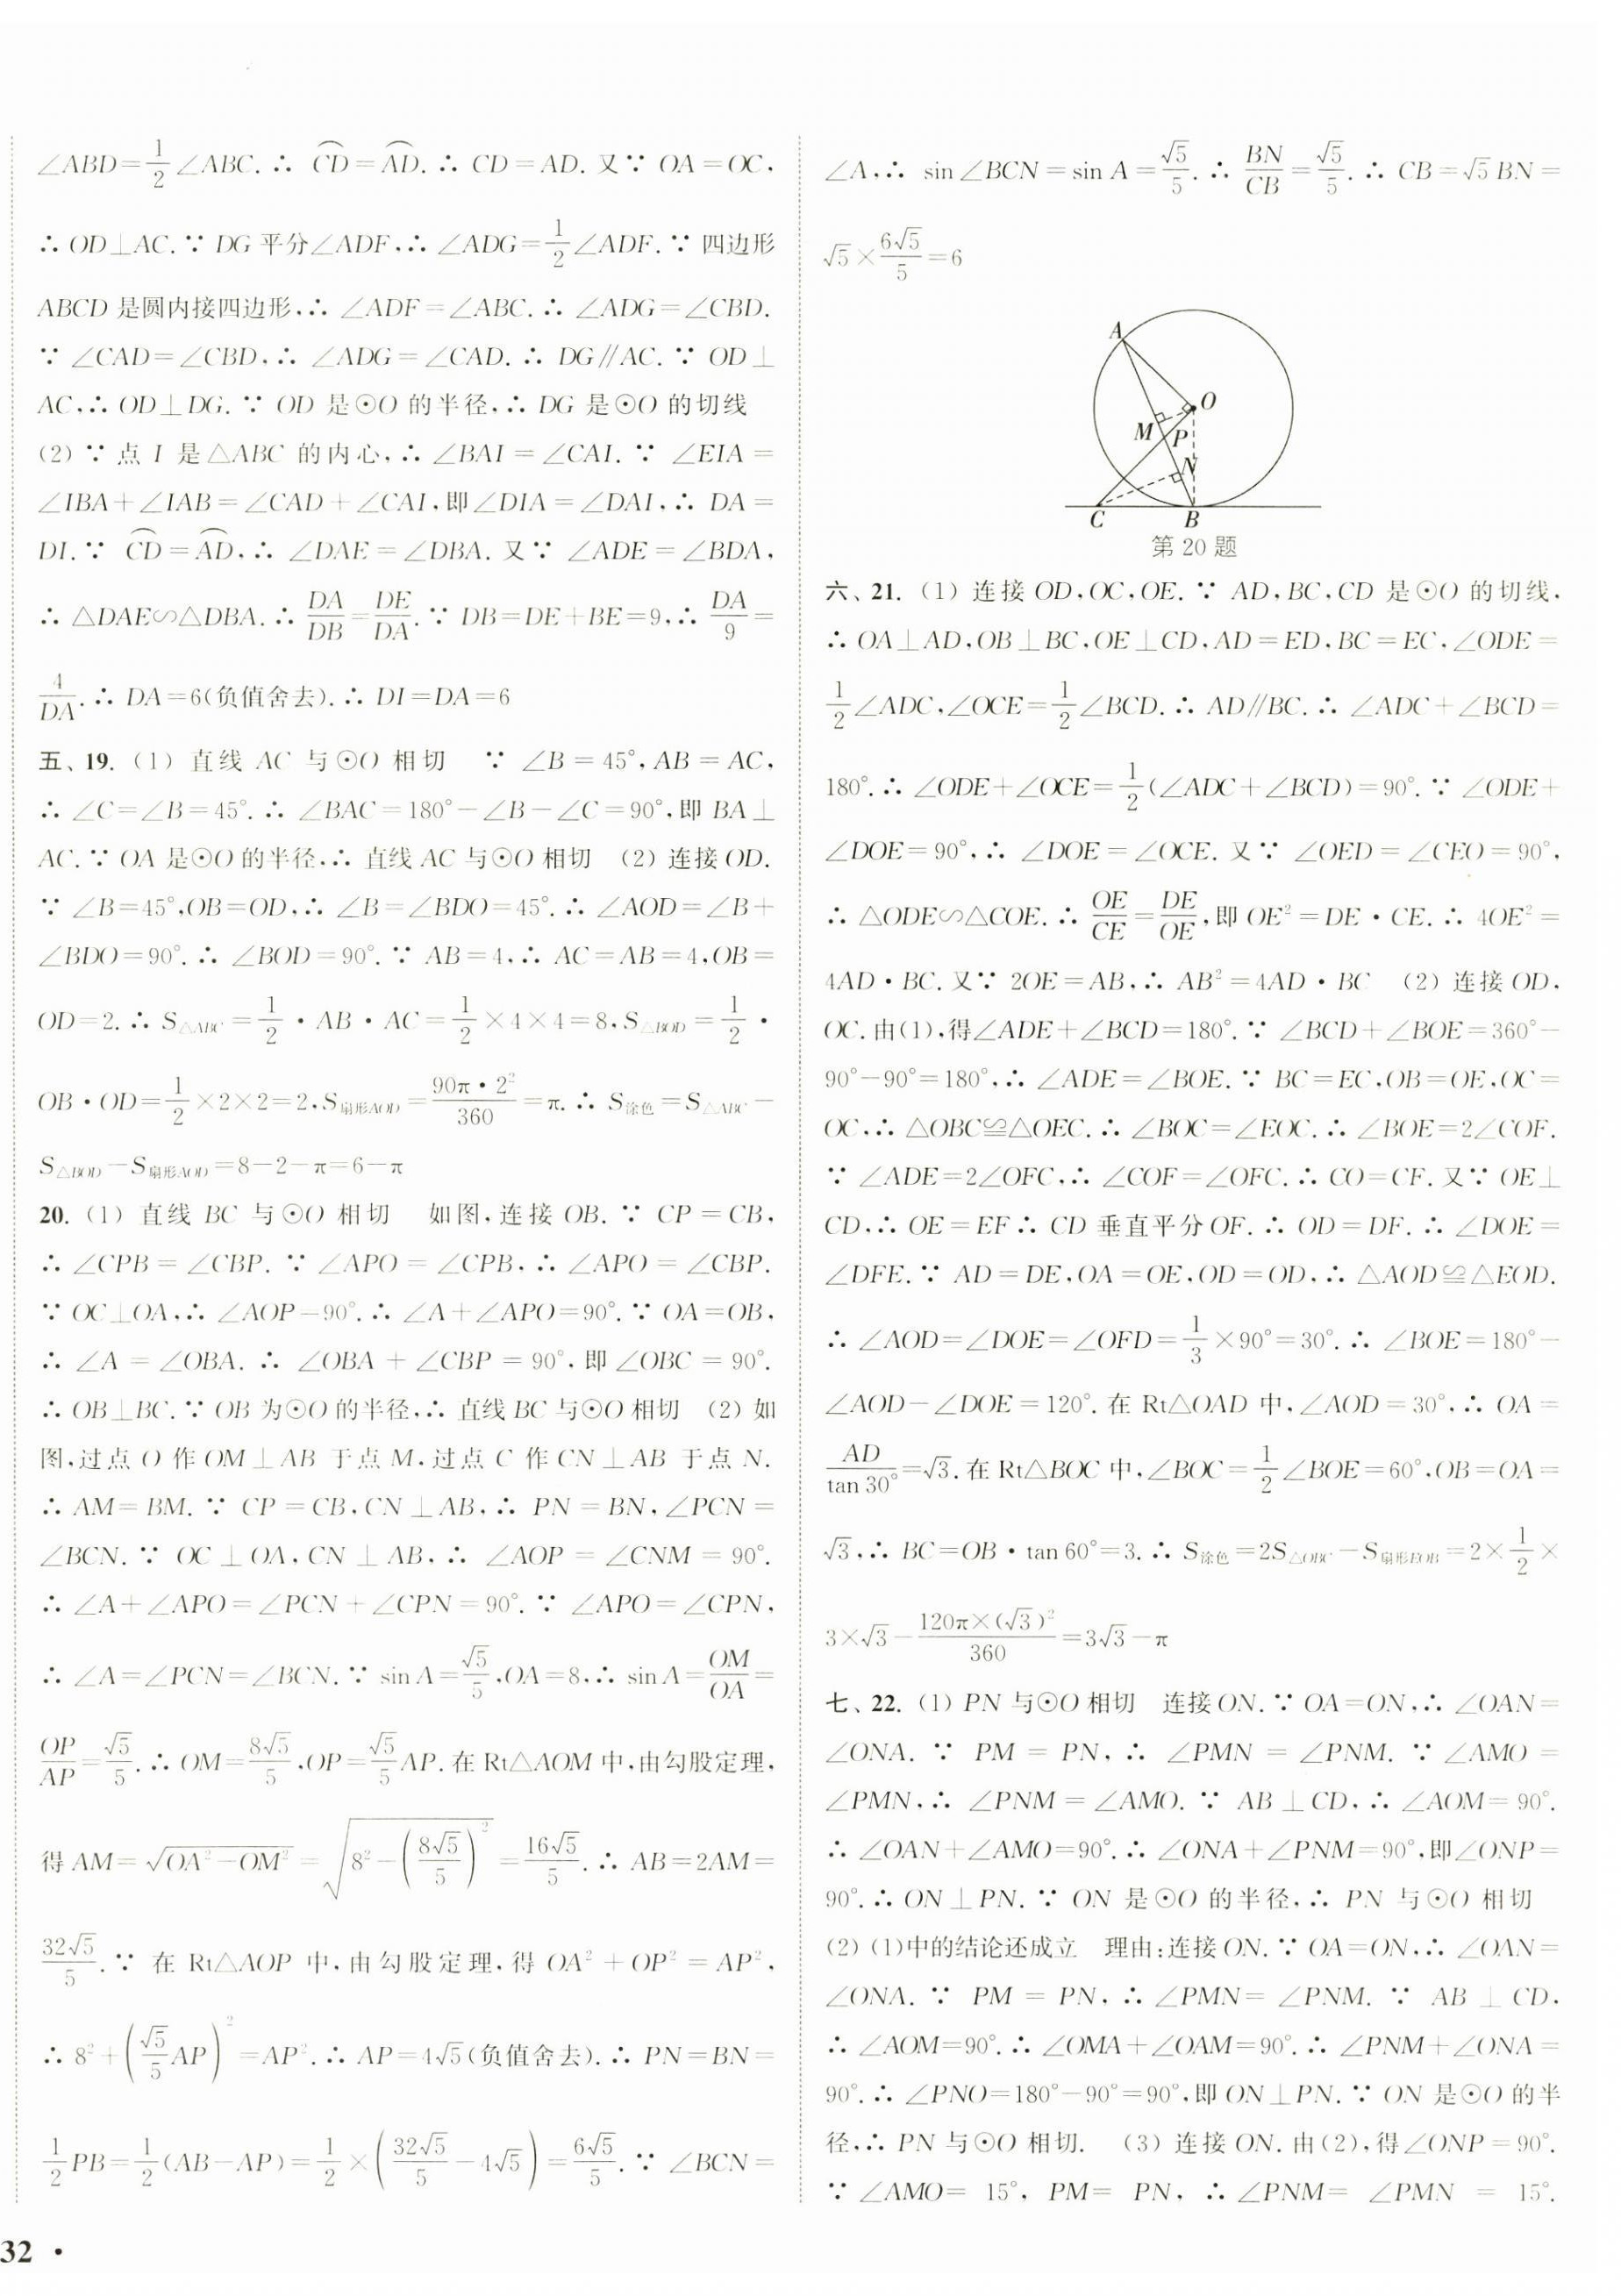 ∠ABD=1/2∠ABC.∴ C͡D=A͡D.∴ CD=AD. 又∵ OA=OC,
∴ OD⊥AC.∵ DG 平分∠ADF,∴ ∠ADG=1/2∠ADF.∵ 四边形
ABCD 是圆内接四边形,∴ ∠ADF=∠ABC.∴ ∠ADG=∠CBD.
∵ ∠CAD=∠CBD,∴ ∠ADG=∠CAD.∴ DG∥AC.∵ OD⊥
AC,∴ OD⊥DG.∵ OD 是⊙O 的半径,∴ DG 是⊙O 的切线
(2) ∵ 点 I 是△ABC 的内心,∴ ∠BAI=∠CAI.∵ ∠EIA=
∠IBA+∠IAB=∠CAD+∠CAI,即∠DIA=∠DAI,∴ DA=
DI.∵ C͡D=A͡D,∴ ∠DAE=∠DBA. 又∵ ∠ADE=∠BDA,
∴ △DAE∽△DBA.∴ DA/DB=DE/DA.∵ DB=DE+BE=9,∴ DA/9=
4/DA.∴ DA=6(负值舍去).∴ DI=DA=6
五、19. (1) 直线 AC 与⊙O 相切 ∵ ∠B=45°,AB=AC,
∴ ∠C=∠B=45°.∴ ∠BAC=180°-∠B-∠C=90°,即 BA⊥
AC.∵ OA 是⊙O 的半径,∴ 直线 AC 与⊙O 相切 (2) 连接 OD.
∵ ∠B=45°,OB=OD,∴ ∠B=∠BDO=45°.∴ ∠AOD=∠B+
∠BDO=90°.∴ ∠BOD=90°.∵ AB=4,∴ AC=AB=4,OB=
OD=2.∴ S△ABC=1/2·AB·AC=1/2×4×4=8,S△BOD=1/2·
OB·OD=1/2×2×2=2,S扇形AOD=90π·2²/360=π.∴ S涂色=S△ABC-
S△BOD-S扇形AOD=8-2-π=6-π
20. (1) 直线 BC 与⊙O 相切 如图,连接 OB.∵ CP=CB,
∴ ∠CPB=∠CBP.∵ ∠APO=∠CPB,∴ ∠APO=∠CBP.
∵ OC⊥OA,∴ ∠AOP=90°.∴ ∠A+∠APO=90°.∵ OA=OB,
∴ ∠A=∠OBA.∴ ∠OBA+∠CBP=90°,即∠OBC=90°.
∴ OB⊥BC.∵ OB 为⊙O 的半径,∴ 直线 BC 与⊙O 相切 (2) 如
图,过点 O 作 OM⊥AB 于点 M,过点 C 作 CN⊥AB 于点 N.
∴ AM=BM.∵ CP=CB,CN⊥AB,∴ PN=BN,∠PCN=
∠BCN.∵ OC⊥OA,CN⊥AB,∴ ∠AOP=∠CNM=90°.
∴ ∠A+∠APO=∠PCN+∠CPN=90°.∵ ∠APO=∠CPN,
∴ ∠A=∠PCN=∠BCN.∵ sin A=√5/5,OA=8,∴ sin A=OM/OA=
OP/AP=√5/5.∴ OM=8√5/5,OP=√5/5AP. 在 Rt△AOM 中,由勾股定理,
得 AM=√(OA²-OM²)=√(8²-(8√5/5)²)=16√5/5.∴ AB=2AM=
32√5/5.∵ 在 Rt△AOP 中,由勾股定理,得 OA²+OP²=AP²,
∴ 8²+(√5/5AP)²=AP².∴ AP=4√5(负值舍去).∴ PN=BN=
1/2PB=1/2(AB-AP)=1/2×(32√5/5-4√5)=6√5/5.∵ ∠BCN=
32 ·
∠A,∴ sin∠BCN=sin A=√5/5.∴ BN/CB=√5/5.∴ CB=√5BN=
√5×6√5/5=6
A
O
M
P
N
C
B
第 20 题
六、21. (1) 连接 OD,OC,OE.∵ AD,BC,CD 是⊙O 的切线,
∴ OA⊥AD,OB⊥BC,OE⊥CD,AD=ED,BC=EC,∠ODE=
1/2∠ADC,∠OCE=1/2∠BCD.∴ AD∥BC.∴ ∠ADC+∠BCD=
180°.∴ ∠ODE+∠OCE=1/2(∠ADC+∠BCD)=90°.∵ ∠ODE+
∠DOE=90°,∴ ∠DOE=∠OCE. 又∵ ∠OED=∠CEO=90°,
∴ △ODE∽△COE.∴ OE/CE=DE/OE,即 OE²=DE·CE.∴ 4OE²=
4AD·BC. 又∵ 2OE=AB,∴ AB²=4AD·BC (2) 连接 OD,
OC. 由(1),得∠ADE+∠BCD=180°.∵ ∠BCD+∠BOE=360°-
90°-90°=180°,∴ ∠ADE=∠BOE.∵ BC=EC,OB=OE,OC=
OC,∴ △OBC≌△OEC.∴ ∠BOC=∠EOC.∴ ∠BOE=2∠COF.
∵ ∠ADE=2∠OFC,∴ ∠COF=∠OFC.∴ CO=CF. 又∵ OE⊥
CD,∴ OE=EF∴ CD 垂直平分 OF.∴ OD=DF.∴ ∠DOE=
∠DFE.∵ AD=DE,OA=OE,OD=OD,∴ △AOD≌△EOD.
∴ ∠AOD=∠DOE=∠OFD=1/3×90°=30°.∴ ∠BOE=180°-
∠AOD-∠DOE=120°. 在 Rt△OAD 中,∠AOD=30°,∴ OA=
AD/tan 30°=√3. 在 Rt△BOC 中,∠BOC=1/2∠BOE=60°,OB=OA=
√3,∴ BC=OB·tan 60°=3.∴ S涂色=2S△OBC-S扇形EOB=2×1/2×
3×√3-120π×(√3)²/360=3√3-π
七、22. (1) PN 与⊙O 相切 连接 ON.∵ OA=ON,∴ ∠OAN=
∠ONA.∵ PM=PN,∴ ∠PMN=∠PNM.∵ ∠AMO=
∠PMN,∴ ∠PNM=∠AMO.∵ AB⊥CD,∴ ∠AOM=90°.
∴ ∠OAN+∠AMO=90°.∴ ∠ONA+∠PNM=90°,即∠ONP=
90°.∴ ON⊥PN.∵ ON 是⊙O 的半径,∴ PN 与⊙O 相切
(2) (1)中的结论还成立 理由:连接 ON.∵ OA=ON,∴ ∠OAN=
∠ONA.∵ PM=PN,∴ ∠PMN=∠PNM.∵ AB⊥CD,
∴ ∠AOM=90°.∴ ∠OMA+∠OAM=90°.∴ ∠PNM+∠ONA=
90°.∴ ∠PNO=180°-90°=90°,即 ON⊥PN.∵ ON 是⊙O 的半
径,∴ PN 与⊙O 相切. (3) 连接 ON. 由(2),得∠ONP=90°.
∵ ∠AMO=15°,PM=PN,∴ ∠PNM=∠PMN=15°.